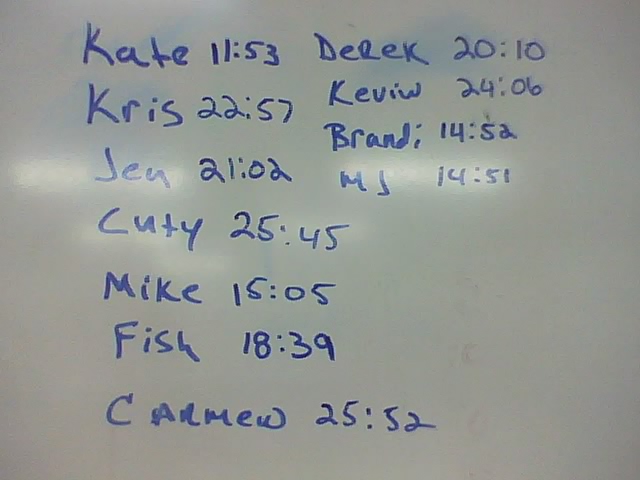 Kate 11:53
Kris 22:57
Jen 21:02
Cuty 25:45
Mike 15:05
Fish 18:39
CARMEN 25:52
DEREK 20:10
Kevin 24:06
Brandi 14:52
MJ 14:51